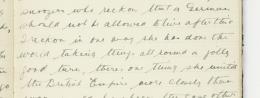 snoozers who reckon that a German
should not be allowed to live after this
I reckon in one way she has done the
world, taking things all round a jolly
good turn, there's one thing she united
the British Empire more closely than